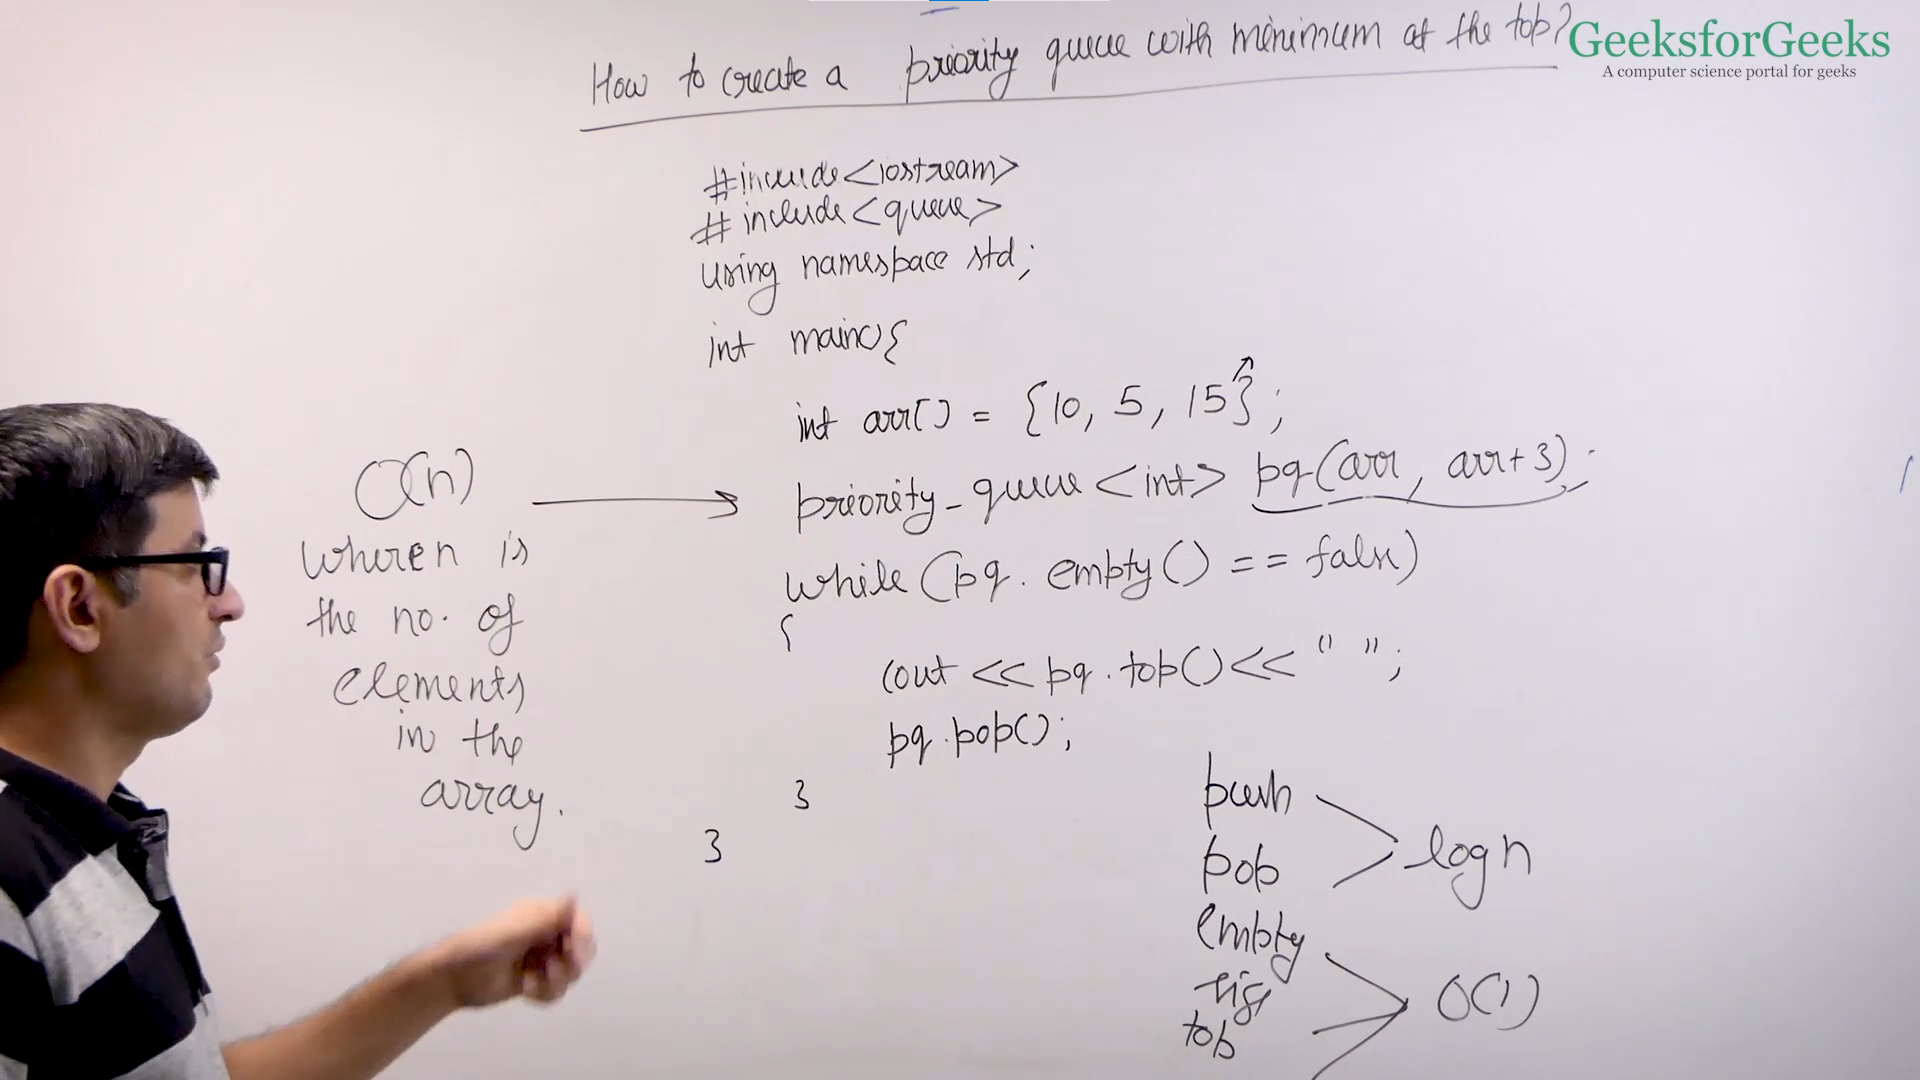 How to create a priority queue with minimum at the top?
GeeksforGeeks
A computer science portal for geeks
#include<iostream>
#include<queue>
using namespace std;
int main(){
int arr[] = {10, 5, 15};
priority_queue<int> pq(arr, arr+3);
while (pq. empty() == false)
{
cout << pq.top() << " ";
pq.pop();
}
}
O(n)
where n is
the no. of
elements
in the
array.
push
pop
log n
empty
size
top
O(1)